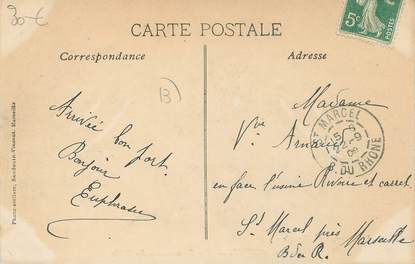 30 €
5c
CARTE POSTALE
Correspondance
Adresse
B
Arrivée bon port.
Bonjour
Euphrasie
Madame
Vve Arnaud
en face l'usine Rivoire et carret
St Marcel près Marseille
B du R.
ST MARCEL
B. DU RHONE